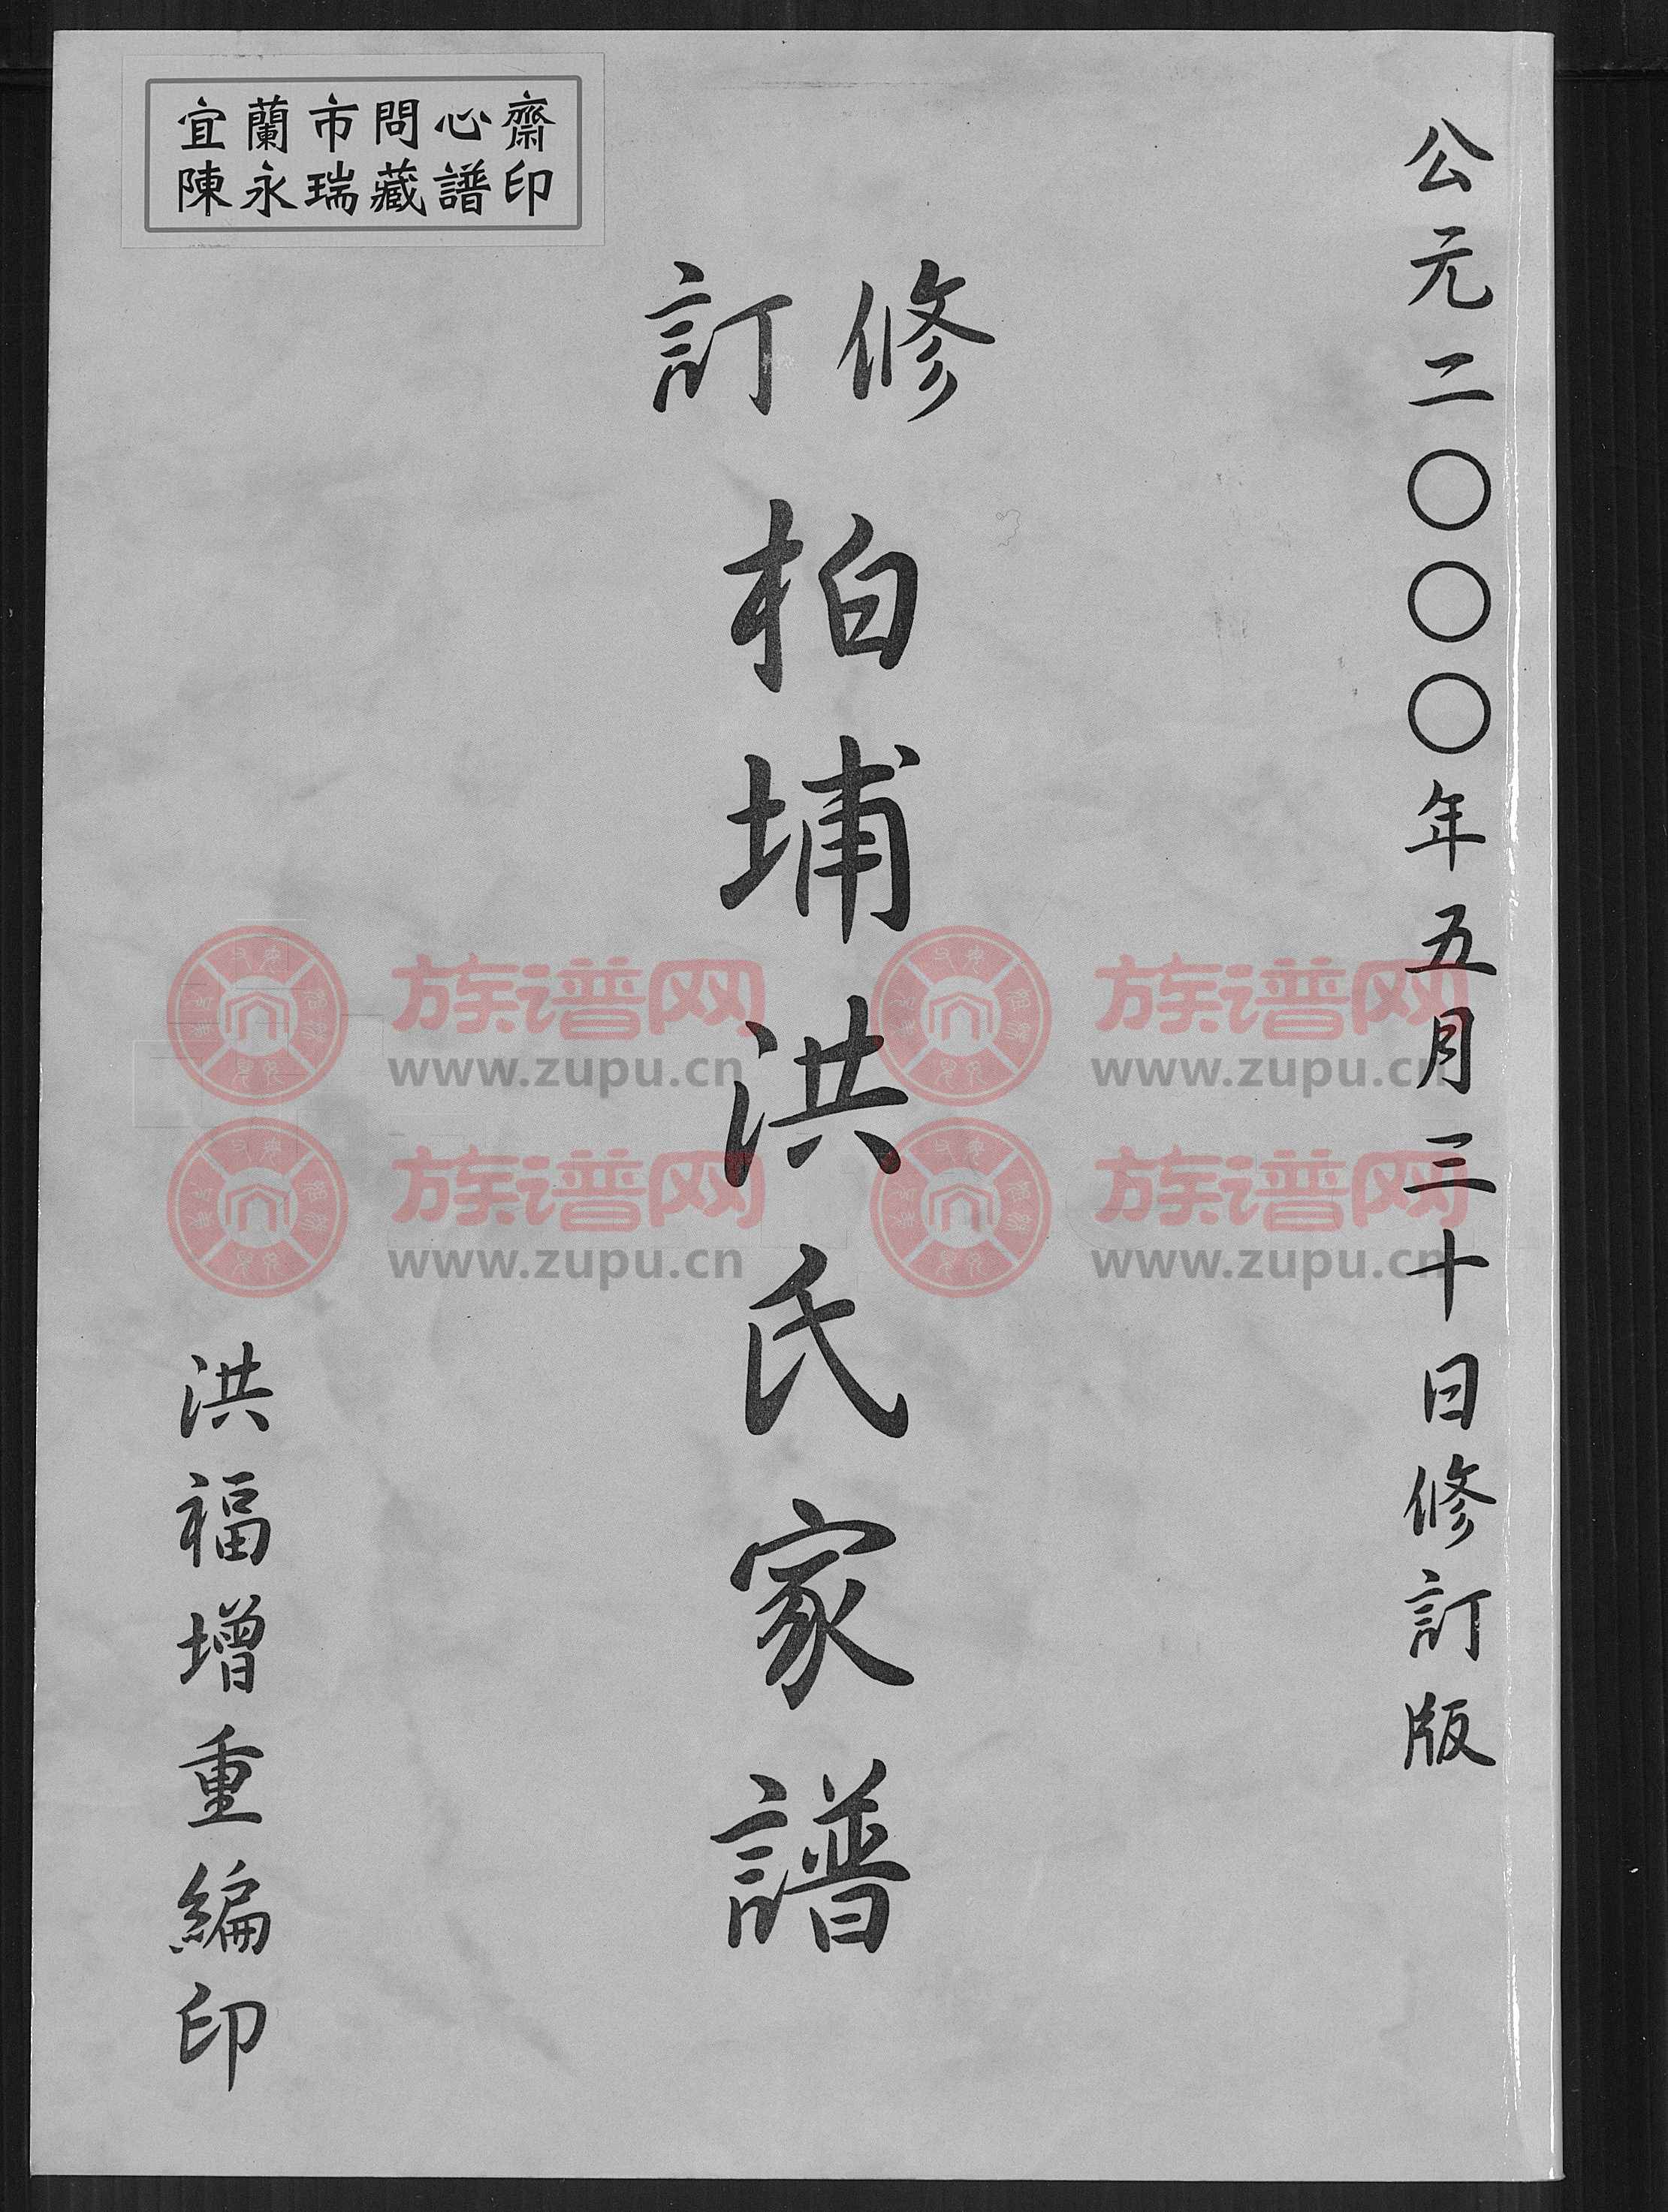 公元二〇〇〇年五月三十日修訂版
修訂
柏埔洪氏家譜
洪福增重編印
宜蘭市問心齋
陳永瑞藏譜印
族谱网
www.zupu.cn
族谱网
www.zupu.cn
族谱网
www.zupu.cn
族谱网
www.zupu.cn